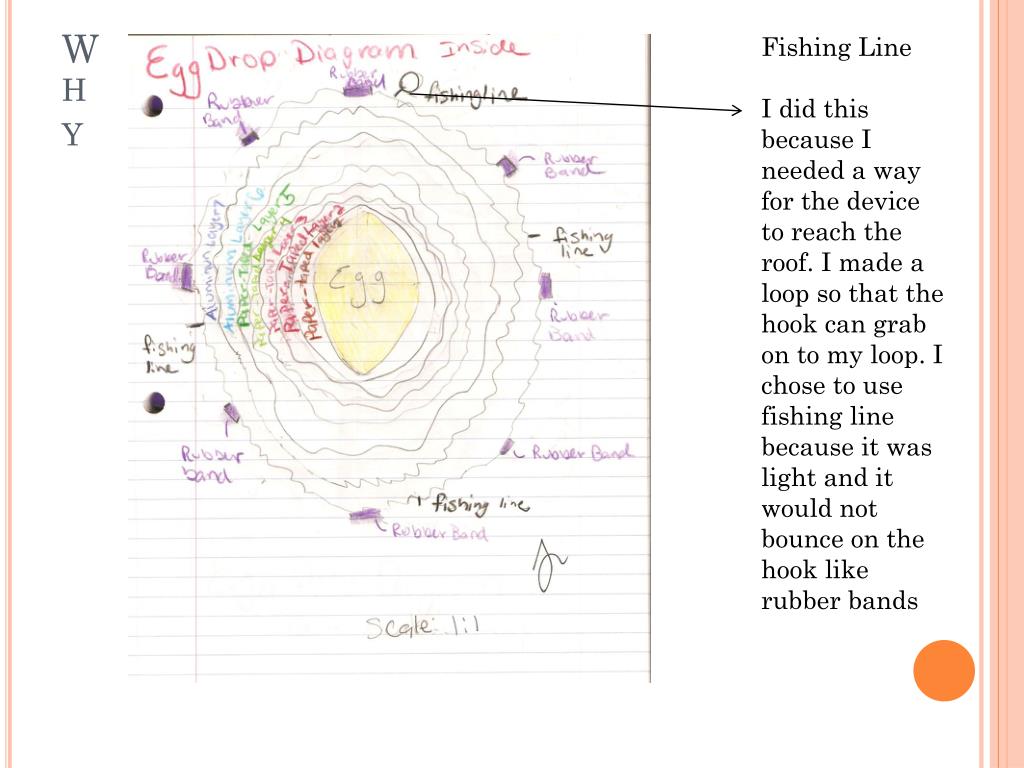 W
H
Y
Egg Drop Diagram Inside
Rubber
Band
fishing line
Rubber
Band
Rubber
Band
fishing
line
Rubber
Band
Rubber
Band
fishing
line
Aluminum Layer 7
Aluminum Layer 6
Paper-Taped Layer 5
Paper-Taped Layer 4
Paper-Taped Layer 3
Paper-Taped Layer 2
Paper-Taped Layer
Egg
Rubber
band
Rubber Band
fishing line
Rubber Band
Scale: 1:1
Fishing Line
I did this
because I
needed a way
for the device
to reach the
roof. I made a
loop so that the
hook can grab
on to my loop. I
chose to use
fishing line
because it was
light and it
would not
bounce on the
hook like
rubber bands